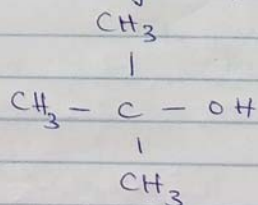 CH3
|
CH3 - C - OH
|
CH3